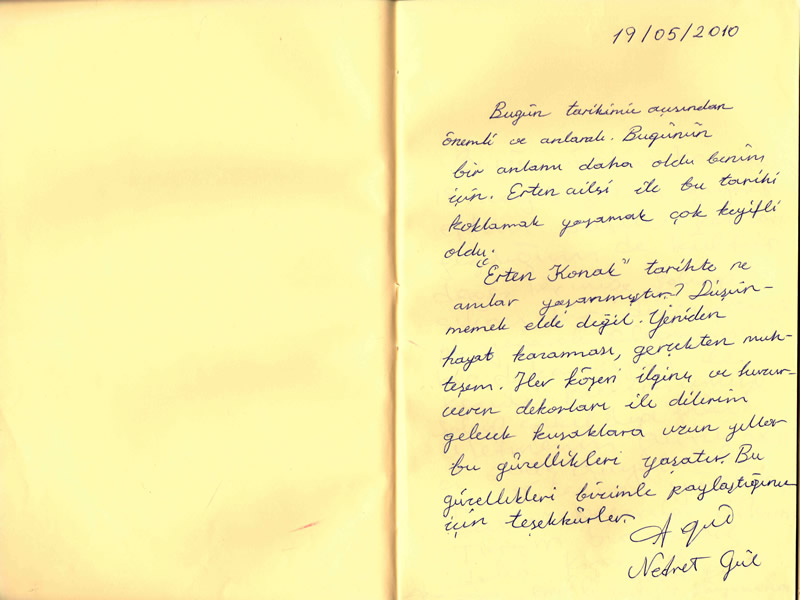 19/05/2010
Bugün tarihimiz açısından
önemli ve anlamlı. Bugünün
bir anlamı daha oldu benim
için. Erten ailesi ile bu tarihi
koklamak yaşamak çok keyifli
oldu.
"Erten Konak" tarihte ne
anılar yaşanmıştır? Düşün-
memek elde değil. Yeniden
hayat kazanması, gerçekten muh-
teşem. Her köşesi ilginç ve huzur-
veren dekorları ile dilerim
gelecek kuşaklara uzun yıllar
bu güzellikleri yaşatır. Bu
güzellikleri bizimle paylaştığınız
için teşekkürler.
Nedret Gül